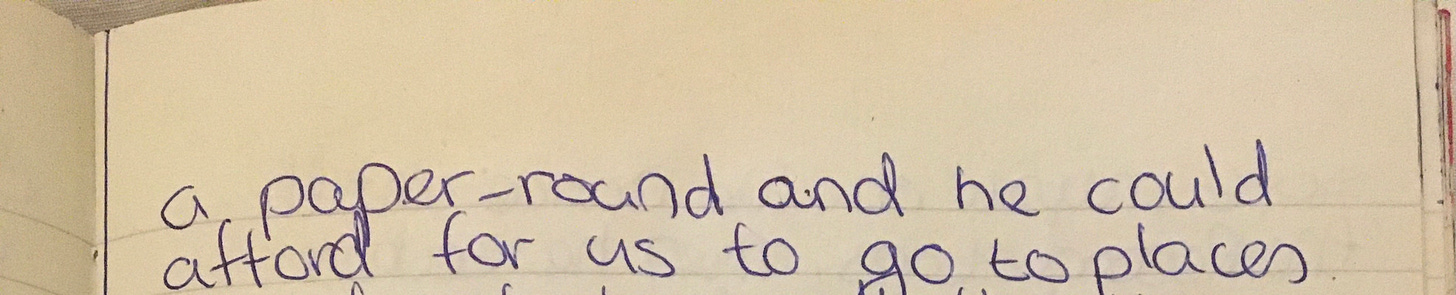 a paper-round and he could
afford for us to go to places